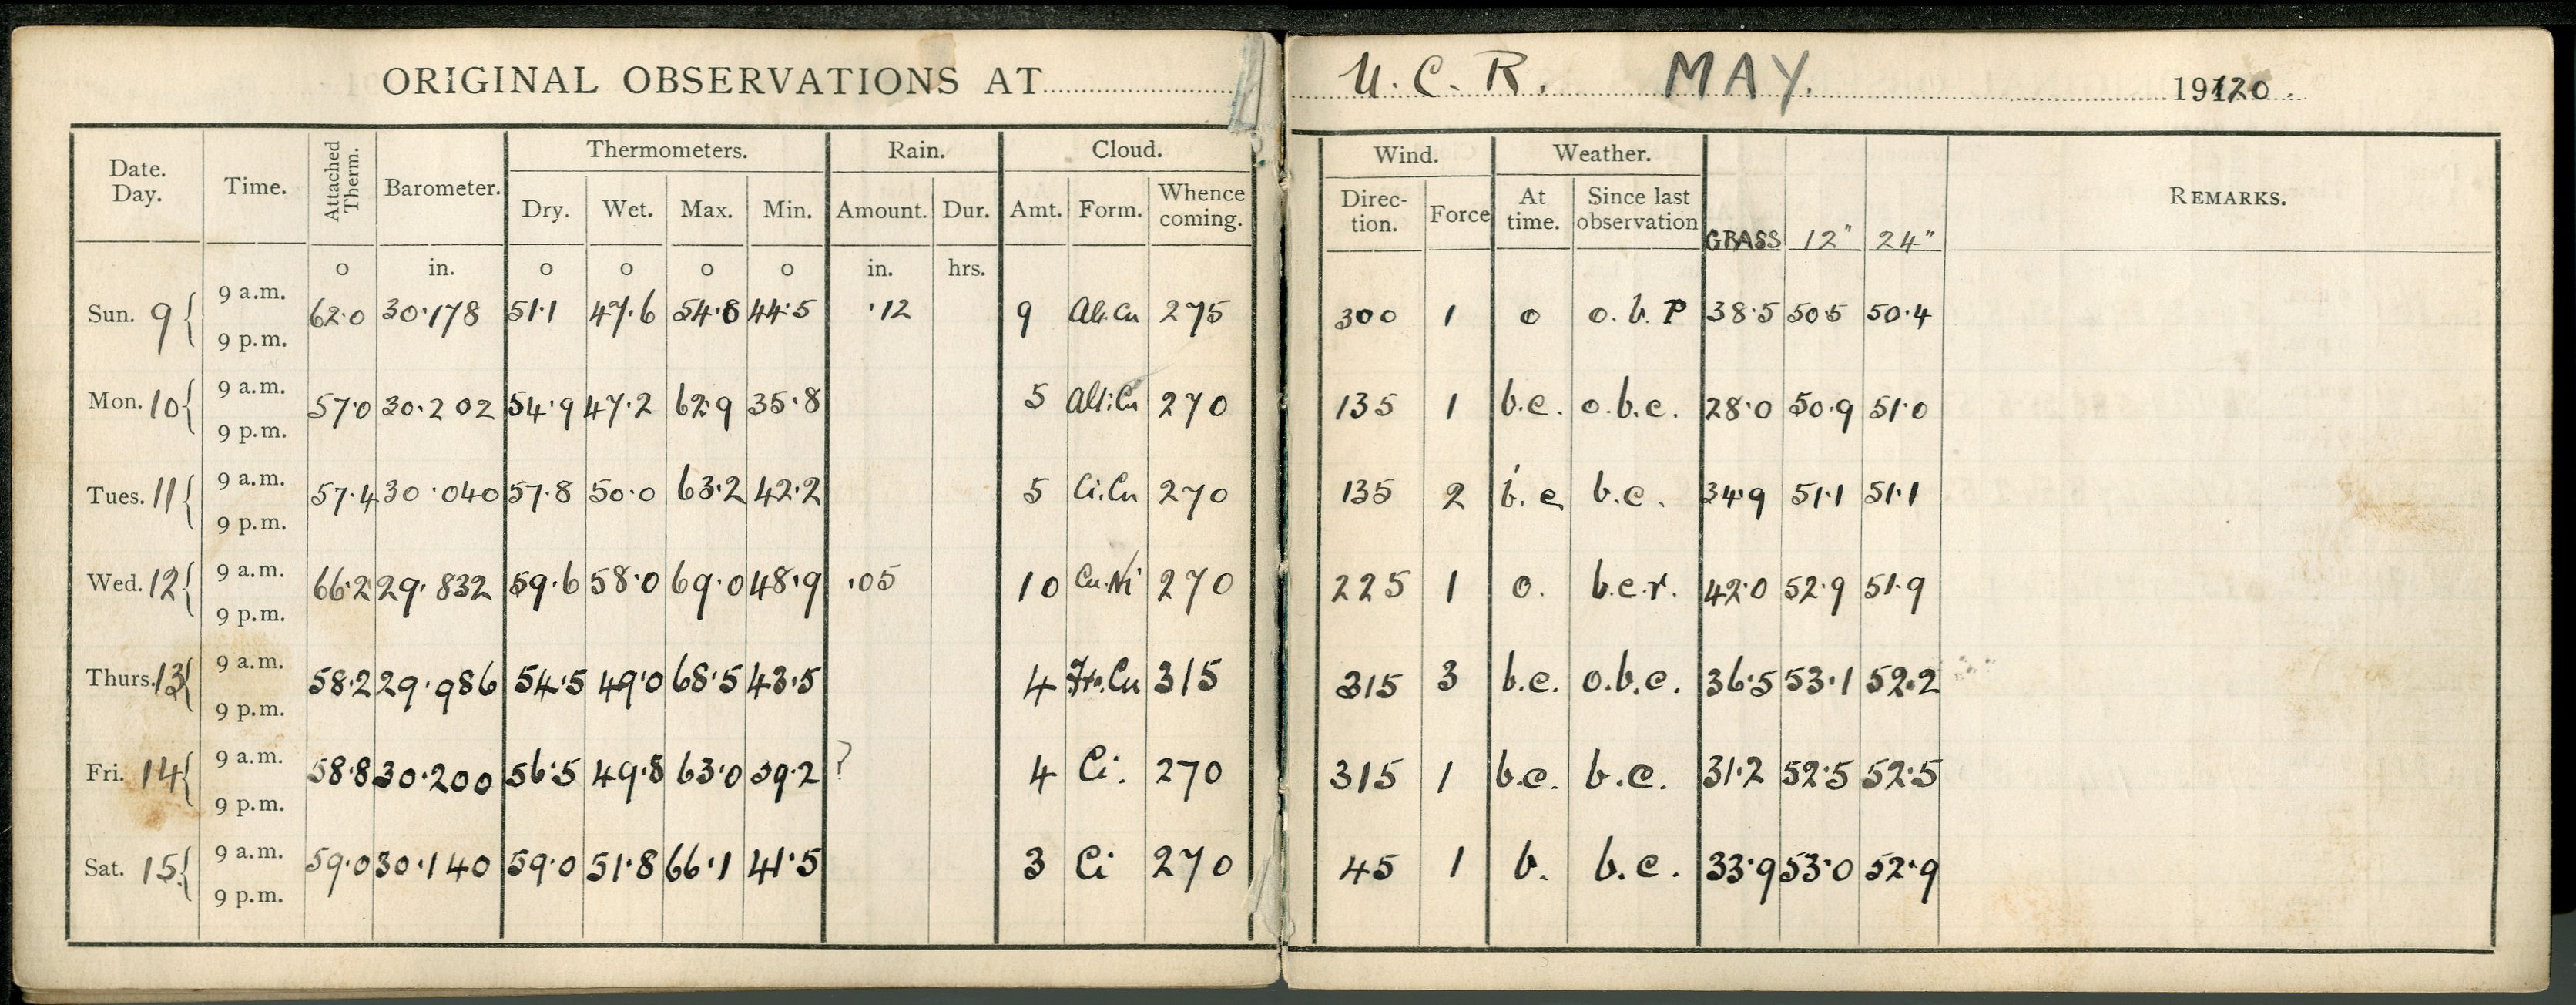 ORIGINAL OBSERVATIONS AT U.C.R. MAY. 1920.
Date. Day. Time. Attached Therm. Barometer. Thermometers. Rain. Cloud. Wind. Weather. REMARKS.
Dry. Wet. Max. Min. Amount. Dur. Amt. Form. Whence coming. Direc-tion. Force At time. Since last observation GRASS 12" 24"
o in. o o o o in. hrs.
Sun. 9 { 9 a.m. 62.0 30.178 51.1 47.6 54.8 44.5 .12 9 Alt.Cu 275 300 1 o o.b.P 38.5 50.5 50.4
9 p.m.
Mon. 10 { 9 a.m. 57.0 30.202 54.9 47.2 62.9 35.8 5 Alt.Cu 270 135 1 b.c. o.b.c. 28.0 50.9 51.0
9 p.m.
Tues. 11 { 9 a.m. 57.4 30.040 57.8 50.0 63.2 42.2 5 Ci.Cu 270 135 2 b.c b.c. 34.9 51.1 51.1
9 p.m.
Wed. 12 { 9 a.m. 66.2 29.832 59.6 58.0 69.0 48.9 .05 10 Cu.Ni 270 225 1 o. b.c.r. 42.0 52.9 51.9
9 p.m.
Thurs. 13 { 9 a.m. 58.2 29.986 54.5 49.0 68.5 43.5 4 Fr.Cu 315 315 3 b.c. o.b.c. 36.5 53.1 52.2
9 p.m.
Fri. 14 { 9 a.m. 58.8 30.200 56.5 49.8 63.0 39.2 ? 4 Ci. 270 315 1 b.c. b.c. 31.2 52.5 52.5
9 p.m.
Sat. 15 { 9 a.m. 59.0 30.140 59.0 51.8 66.1 41.5 3 Ci 270 45 1 b. b.c. 33.9 53.0 52.9
9 p.m.